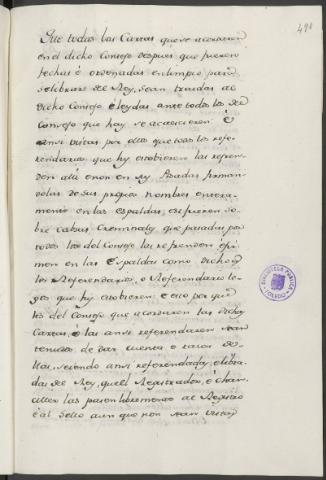 491
Que todas las Cartas que se acordaren
en el dicho Consejo despues que fueren
fechas é ordenadas en limpio para
se librar del Rey, sean traidas al
dicho Consejo é leydas ante todos los del
Consejo que hay se acaecieren: é
ansi vistas por ellos que todos los refe-
rendarios que hy estobieren las refren-
den allí
é non en
firman-
dolas de sus propios nombres entera-
mente en las espaldas, é si fueren so-
bre cabsas Creminales que pasadas por
todos los del Consejo las refrenden é fir-
men en las Espaldas como dicho es
los Referendarios, o Referendario le-
gos que hy estobieren: é esto por que
los del Consejo que acordaren las dichas
Cartas, é las ansi referendaren sean
tenudos de dar cuenta é razon de-
llas, seyendo ansi referendadas, é libra-
das del Rey, quel Registrador, é Chan-
celler las pasen libremente al Registro
é al Sello aun que non sean vistas
BIBLIOTECA PUBLICA
TOLEDO